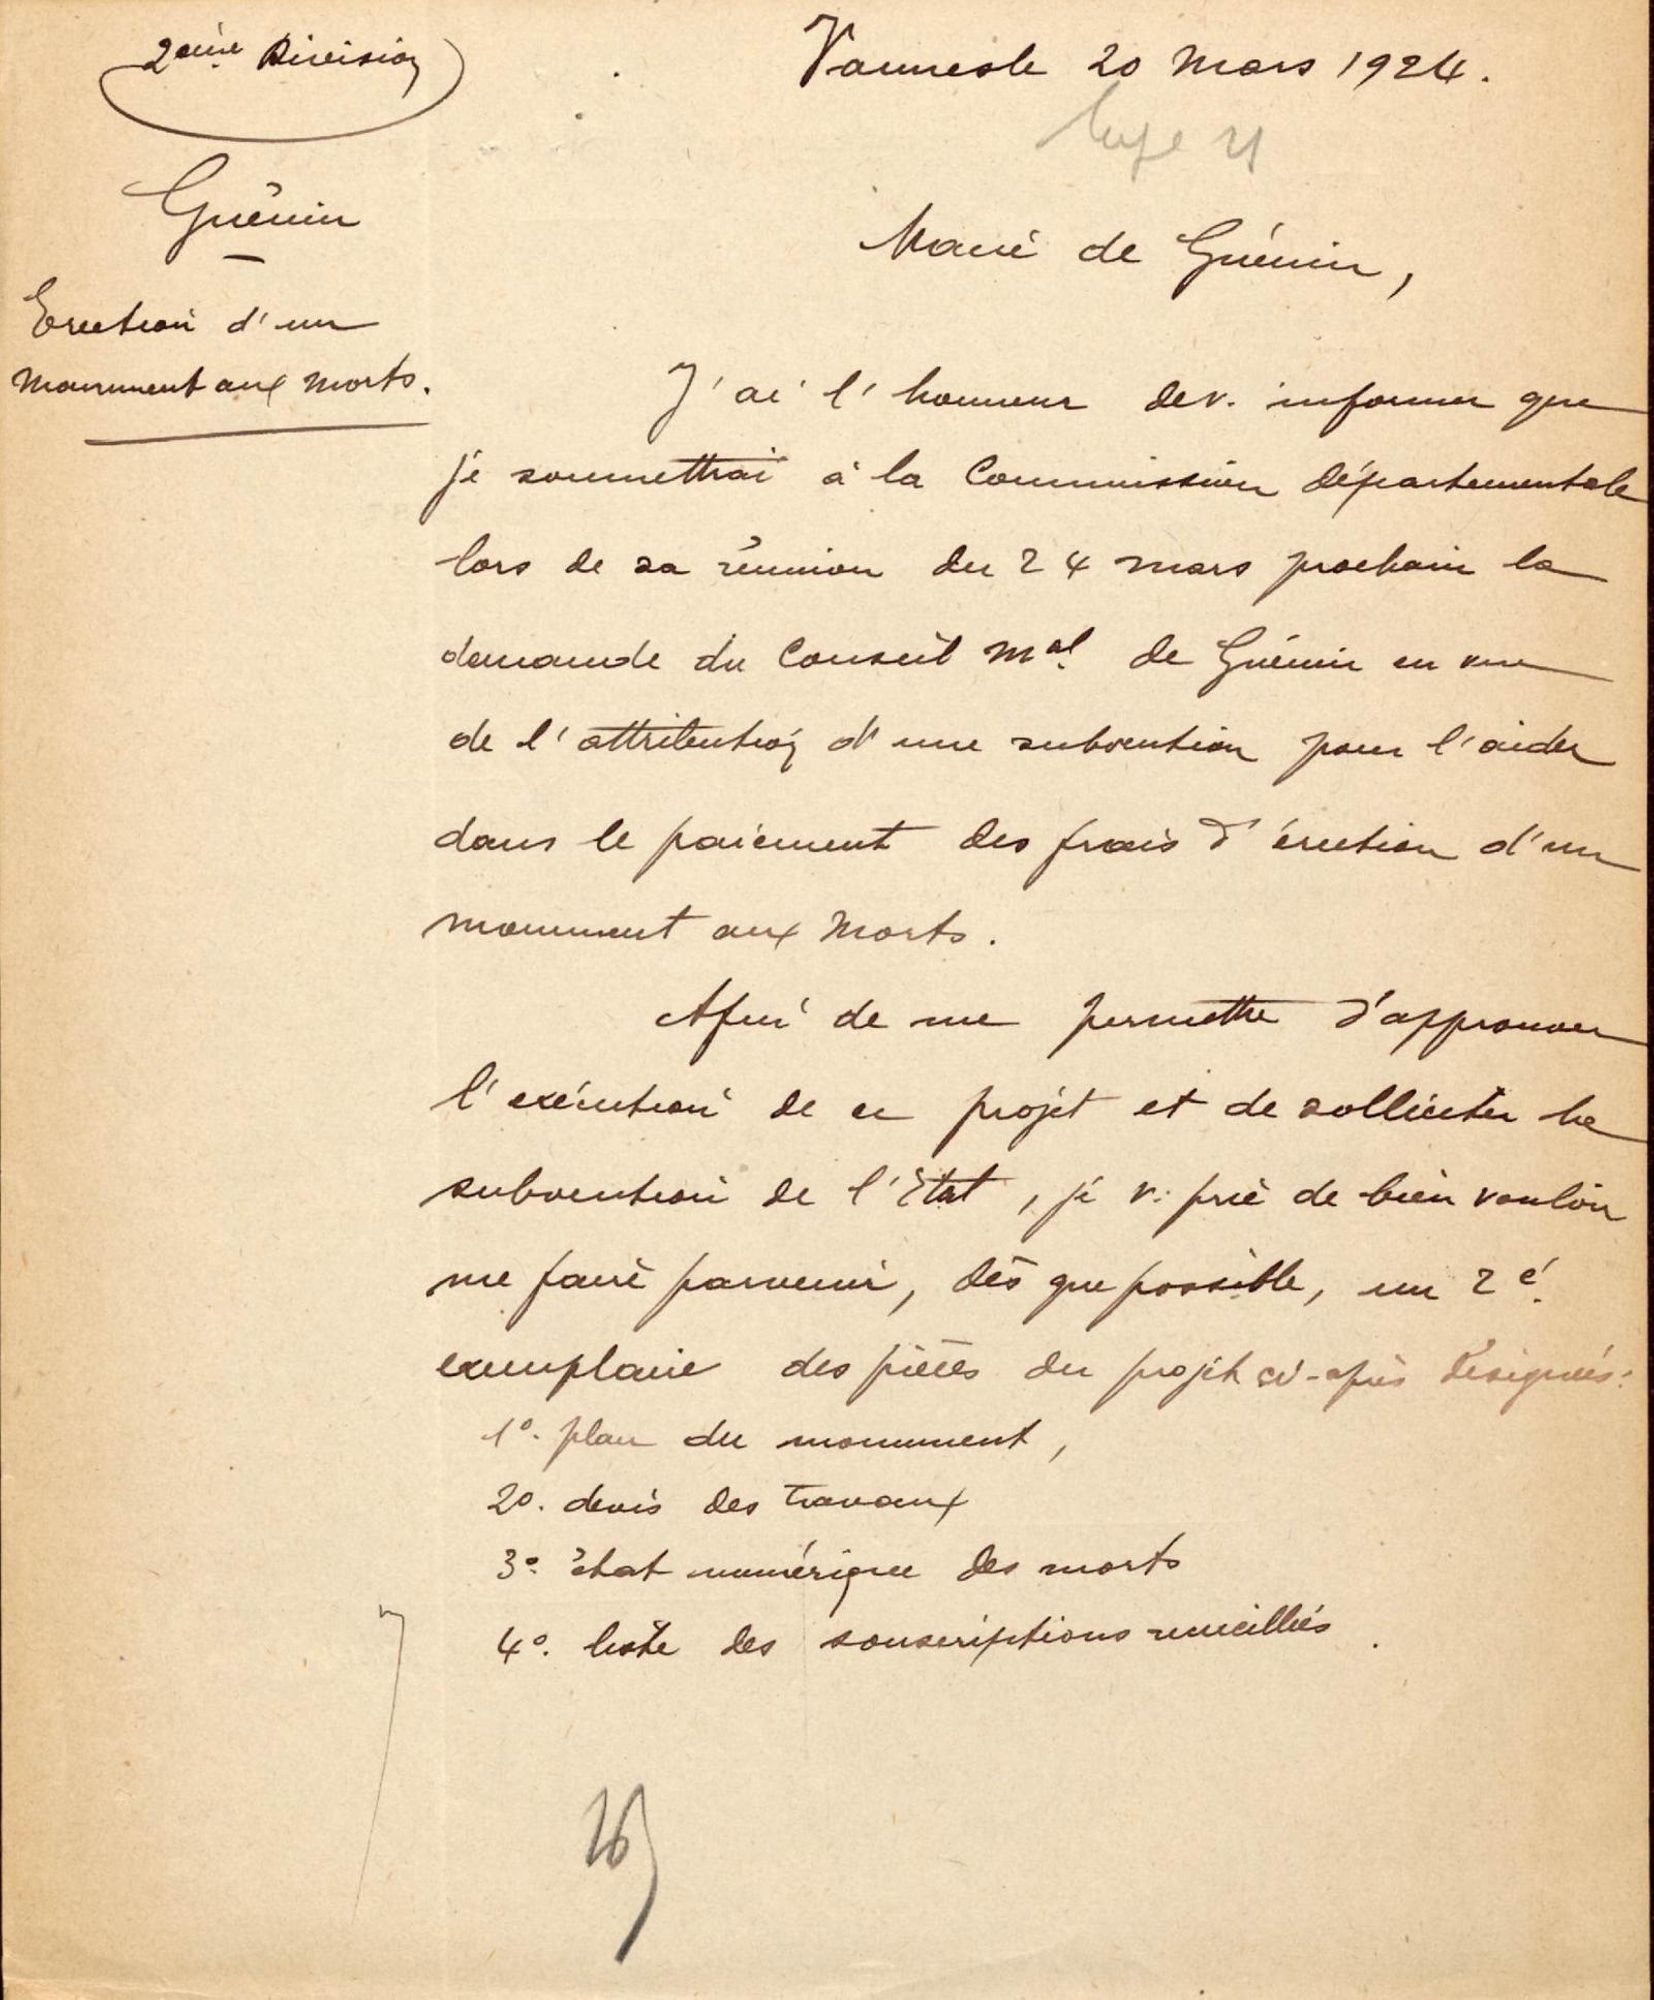 2ème Division
Vannes le 20 Mars 1924.
Guénin
Maire de Guénin,
Erection d'un
Monument aux Morts.
J'ai l'honneur de v. informer que
je soumettrai à la Commission départementale
lors de sa réunion du 24 mars prochain la
demande du Conseil Mal de Guénin en vue
de l'attribution d'une subvention pour l'aider
dans le paiement des frais d'érection d'un
monument aux Morts.
Afin de me permettre d'approuver
l'exécution de ce projet et de solliciter la
subvention de l'Etat, je v. prie de bien vouloir
me faire parvenir, dès que possible, un 2e
exemplaire des pièces du projet ci-après désignées:
1º. plan du monument,
2º. devis des travaux
3º état numérique des morts
4º. liste des souscriptions recueillies.